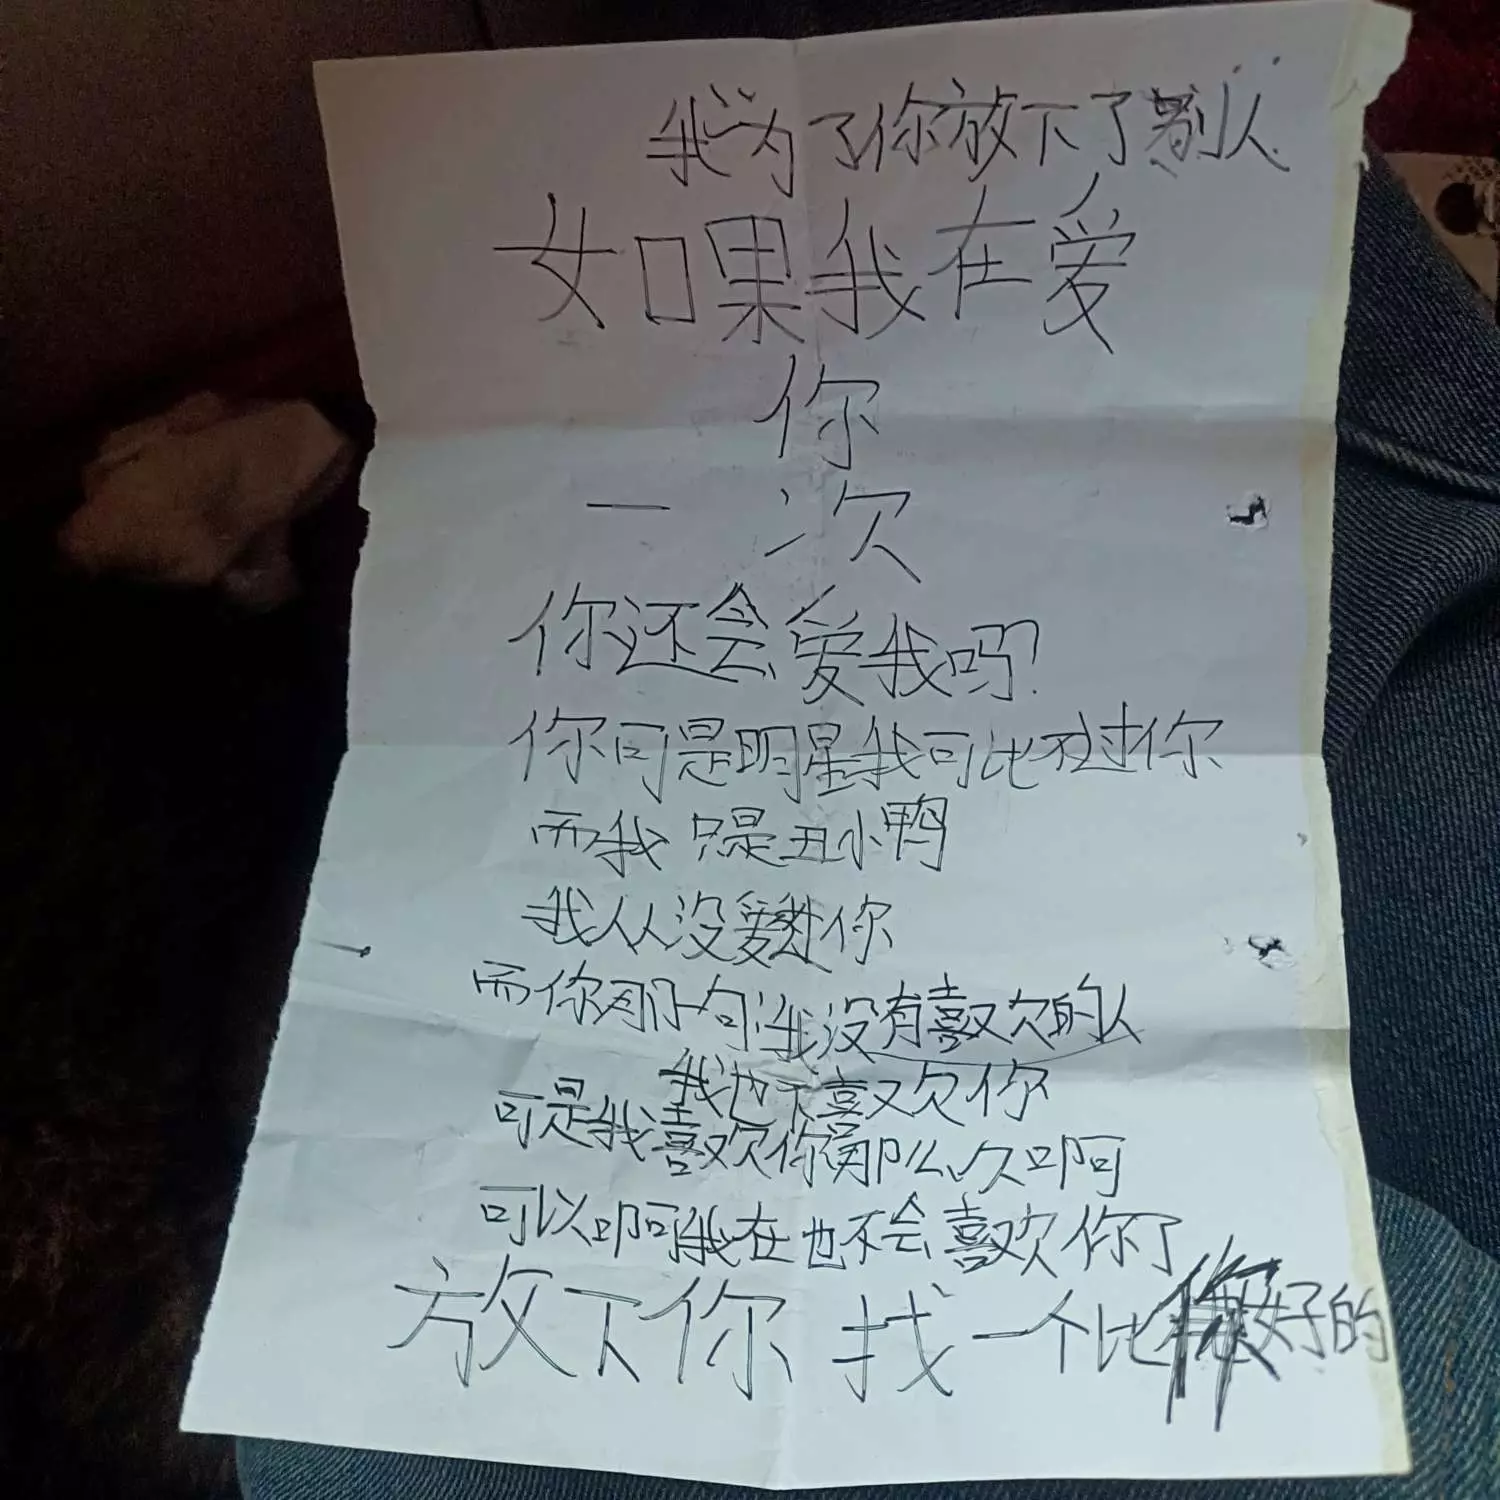 我为了你放下了别人
如果我在爱
你
一次
你还会爱我吗?
你可是明星我可比不过你
而我只是丑小鸭
我从从没爱你
而你那一句我没有喜欢的人
我也不喜欢你
可是我喜欢你那么久叩阿
可以叩阿我在也不会喜欢你了
放下你 找一个比你好的